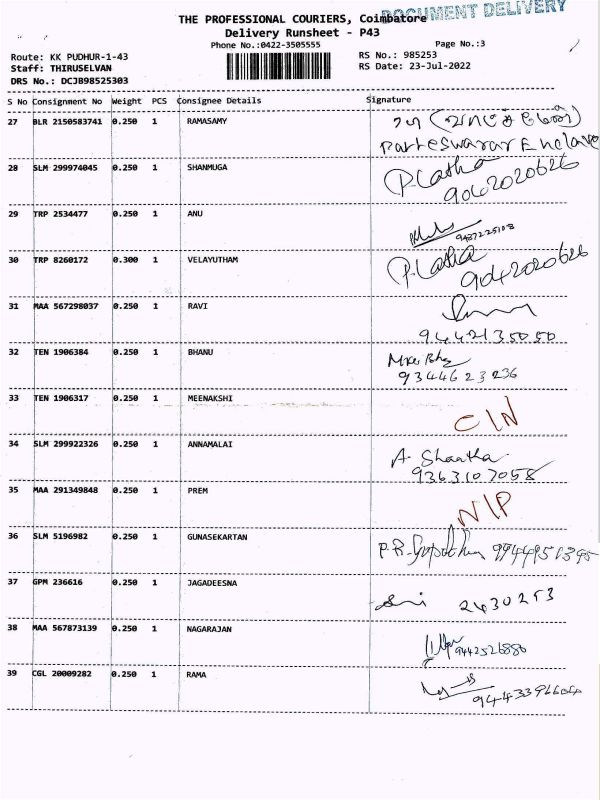 DOCUMENT DELIVERY
THE PROFESSIONAL COURIERS, Coimbatore
Delivery Runsheet - P43
Phone No.:0422-3505555 Page No.:3
Route: KK PUDHUR-1-43 RS No.: 985253
Staff: THIRUSELVAN RS Date: 23-Jul-2022
DRS No.: DCJB98525303
S No Consignment No Weight PCS Consignee Details Signature
27 BLR 2150583741 0.250 1 RAMASAMY
Enclave
28 SLM 299974045 0.250 1 SHANMUGA P. Latha
9042020626
29 TRP 2534477 0.250 1 ANU
9487225108
30 TRP 8260172 0.300 1 VELAYUTHAM P. Latha
9042020626
31 MAA 567298037 0.250 1 RAVI
9442135050
32 TEN 1906384 0.250 1 BHANU
9344623236
33 TEN 1906317 0.250 1 MEENAKSHI C/N
34 SLM 299922326 0.250 1 ANNAMALAI A. Shantha
9363107058
35 MAA 291349848 0.250 1 PREM N/P
36 SLM 5196982 0.250 1 GUNASEKARTAN P.R. 9944951395
37 GPM 236616 0.250 1 JAGADEESNA 2430253
38 MAA 567873139 0.250 1 NAGARAJAN
9442526886
39 CGL 20009282 0.250 1 RAMA